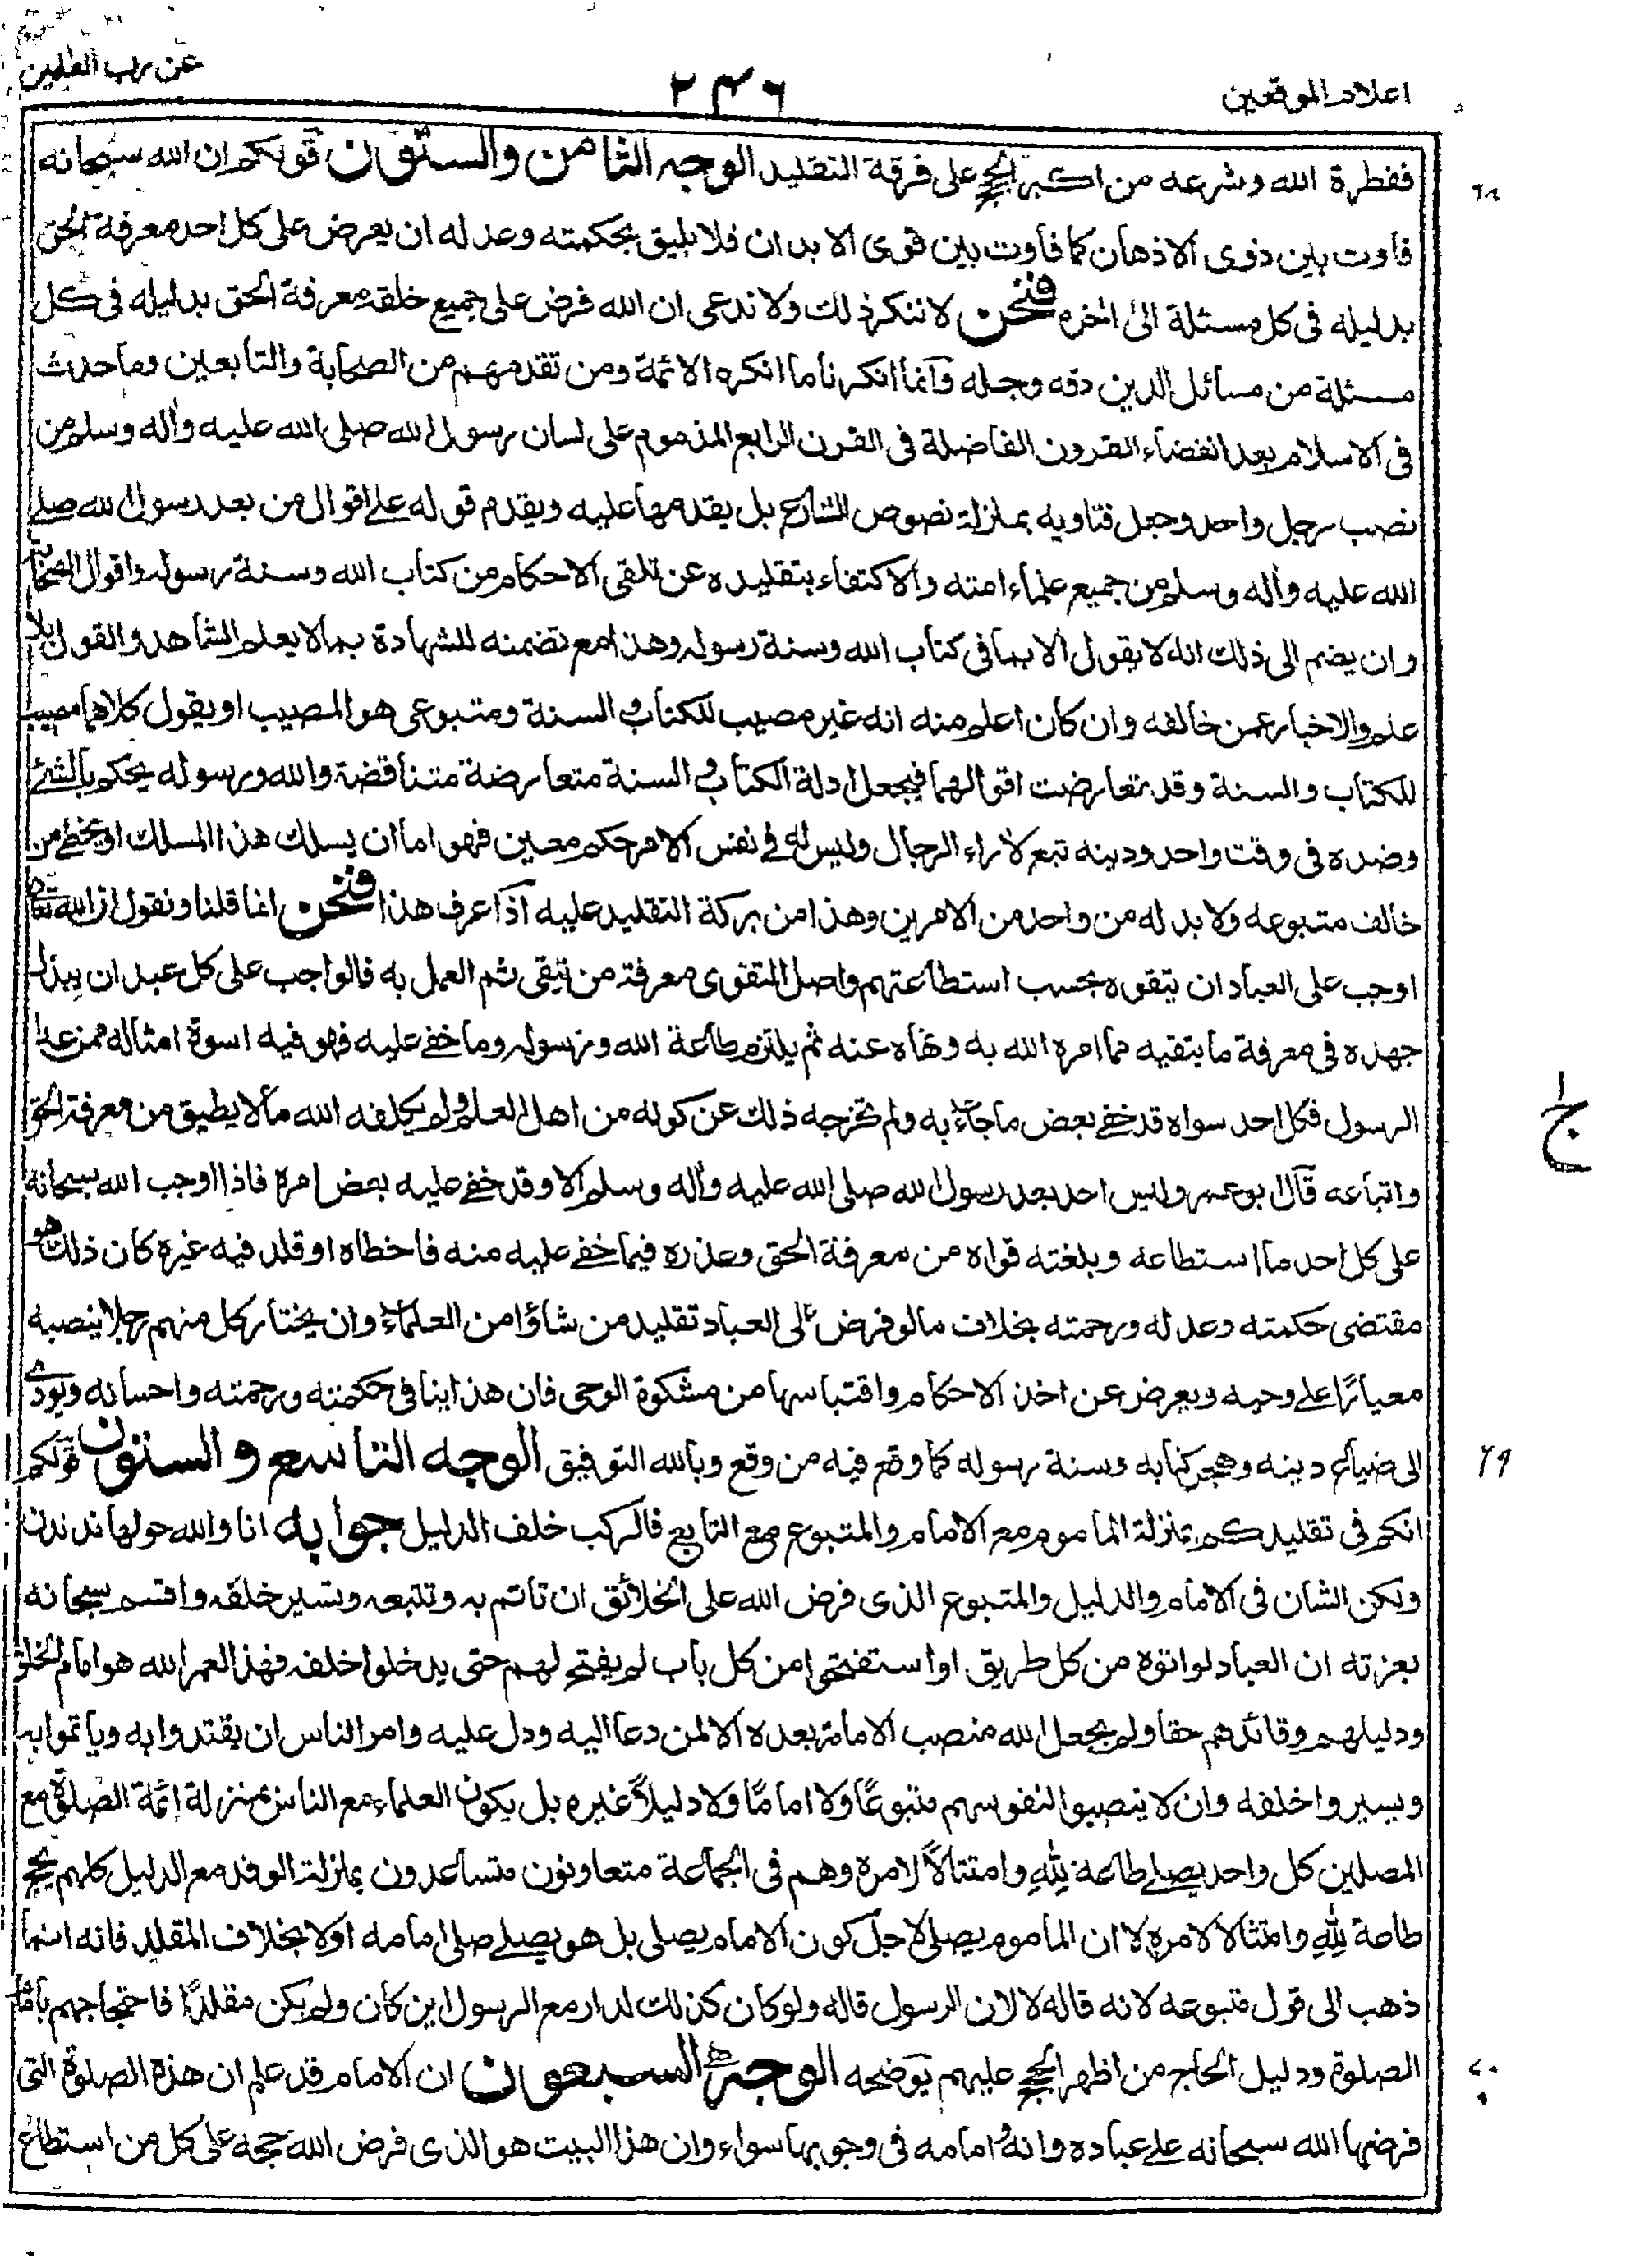 اعلام الموقعين
٢٤٦
عن رب العلمين
ففطرة الله وشرعه من اكبر الحجج على فرقة التقليد الوجه الثامن والستون قولكم ان الله سبحانه
٦٨
فاوت بين ذوى الاذهان كما فاوت بين قوى الابدان فلا يليق بحكمته وعدله ان يعرض على كل احد معرفة الحق
بدليله فى كل مسئلة الى اخره فنحن لا ننكر ذلك ولا ندعى ان الله فرض على جميع خلقه معرفة الحق بدليله فى كل
مسئلة من مسائل الدين دقه وجله وانما انكرنا ما انكره الائمة ومن تقدمهم من الصحابة والتابعين وما حدث
فى الاسلام بعد انقضاء القرون الفاضلة فى القرن الرابع المذموم على لسان رسول الله صلى الله عليه واله وسلم من
نصب رجل واحد وجعل فتاويه بمنزلة نصوص الشارع بل يقدمها عليه ويقدم قوله على اقوال من بعد رسول الله صلى
الله عليه واله وسلم من جميع علماء امته والاكتفاء بتقليده عن تلقى الاحكام من كتاب الله وسنة رسوله واقوال الصحابة
وان يضم الى ذلك انه لا يقول الا بما فى كتاب الله وسنة رسوله وهذا مع تضمنه للشهادة بما لا يعلم الشاهد والقول بلا
علم والاخبار عمن خالفه وان كان اعلم منه انه غير مصيب للكتاب و السنة ومتبوعى هو المصيب او يقول كلاهما مصيب
للكتاب والسنة وقد تعارضت اقوالهما فيجعل ادلة الكتاب و السنة متعارضة متناقضة والله ورسوله يحكم بالشئ
وضده فى وقت واحد ودينه تبع لاراء الرجال وليس له فى نفس الامر حكم معين فهو اما ان يسلك هذا المسلك او يخطئ من
خالف متبوعه ولا بد له من واحد من الامرين وهذا من بركة التقليد عليه اذا عرف هذا فنحن انما قلنا ونقول ان الله تعالى
اوجب على العباد ان يتقوه بحسب استطاعتهم واصل التقوى معرفة من يتقى ثم العمل به فالواجب على كل عبد ان يبذل
جهده فى معرفة ما يتقيه مما امره الله به ونهاه عنه ثم يلتزم طاعة الله ورسوله وما خفى عليه فهو فيه اسوة امثاله ممن عدا
الرسول فكل احد سواه قد خفى بعض ما جاء به ولم تخرجه ذلك عن كونه من اهل العلم ولم يكلفه الله مالا يطيق من معرفة الحق
ج
واتباعه قال ابو عمر وليس احد بعد رسول الله صلى الله عليه واله وسلم الا وقد خفى عليه بعض امره فاذا اوجب الله سبحانه
على كل احد ما استطاعه وبلغته قواه من معرفة الحق وعذره فيما خفى عليه منه فاخطاه او قلد فيه غيره كان ذلك هو
مقتضى حكمته وعدله ورحمته بخلاف مالو فرض على العباد تقليد من شاؤا من العلماء وان يختار كل منهم رجلا ينصبه
معيارًا على وحيه ويعرض عن اخذ الاحكام واقتباسها من مشكوة الوحى فان هذا ينافى حكمته ورحمته واحسانه ويودى
الى ضياع دينه وهجر كتابه وسنة رسوله كما وقع فيه من وقع وبالله التوفيق الوجه التاسع والستون قولكم
٦٩
انكم فى تقليدكم بمنزلة الماموم مع الامام والمتبوع مع التابع فالركب خلف الدليل جوابه انا والله حولها ندندن
ولكن الشان فى الامام والدليل والمتبوع الذى فرض الله على الخلائق ان تاتم به وتتبعه وتسير خلفه واقسم سبحانه
بعزته ان العباد لو اتوه من كل طريق او استفتحوا من كل باب لم يفتح لهم حتى يدخلوا خلفه فهذا لعمر الله هو امام الخلق
ودليلهم وقائدهم حقا ولم يجعل الله منصب الامامة بعده الا لمن دعا اليه ودل عليه وامر الناس ان يقتدوا به وياتموا به
ويسيروا خلفه وان لا ينصبوا لنفوسهم متبوعًا ولا امامًا ولا دليلاً غيره بل يكون العلماء مع الناس بمنزلة ائمة الصلوة مع
المصلين كل واحد يصلى طاعة لله وامتثالاً لامره وهم فى الجماعة متعاونون متساعدون بمنزلة الوفد مع الدليل كلهم يحج
طاعة لله وامتثالا لامره لا ان الماموم يصلى لاجل كون الامام يصلى بل هو يصلى صلى امامه اولا بخلاف المقلد فانه انما
ذهب الى قول متبوعه لانه قاله لا لان الرسول قاله ولو كان كذلك لدار مع الرسول اين كان ولم يكن مقلدًا فاحتجاجهم بامام
الصلوة ودليل الحاج من اظهر الحجج عليهم يوضحه الوجه السبعون ان الامام قد علم ان هذه الصلوة التى
٧٠
فرضها الله سبحانه على عباده وانه و امامه فى وجوبها سواء وان هذا البيت هو الذى فرض الله حجه على كل من استطاع